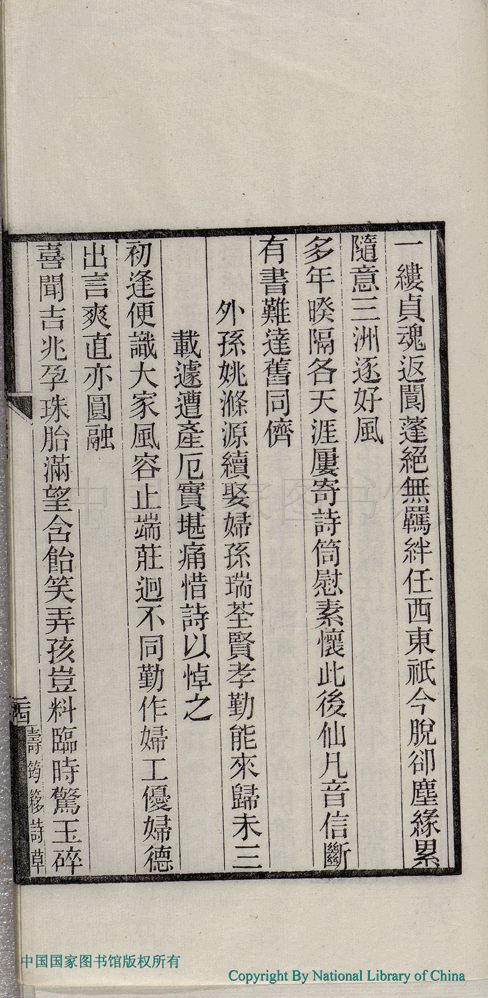 一縷貞魂返閬蓬絕無羈絆任西東祇今脫卻塵緣累
隨意三洲逐好風
多年暌隔各天涯屢寄詩筒慰素懷此後仙凡音信斷
有書難達舊同儕
外孫姚滌源續娶婦孫瑞荃賢孝勤能來歸未三
載遽遭產厄實堪痛惜詩以悼之
初逢便識大家風容止端莊迥不同勤作婦工優婦德
出言爽直亦圓融
喜聞吉兆孕珠胎滿望含飴笑弄孩豈料臨時驚玉碎
壽筠簃詩草
中国国家图书馆版权所有
Copyright By National Library of China